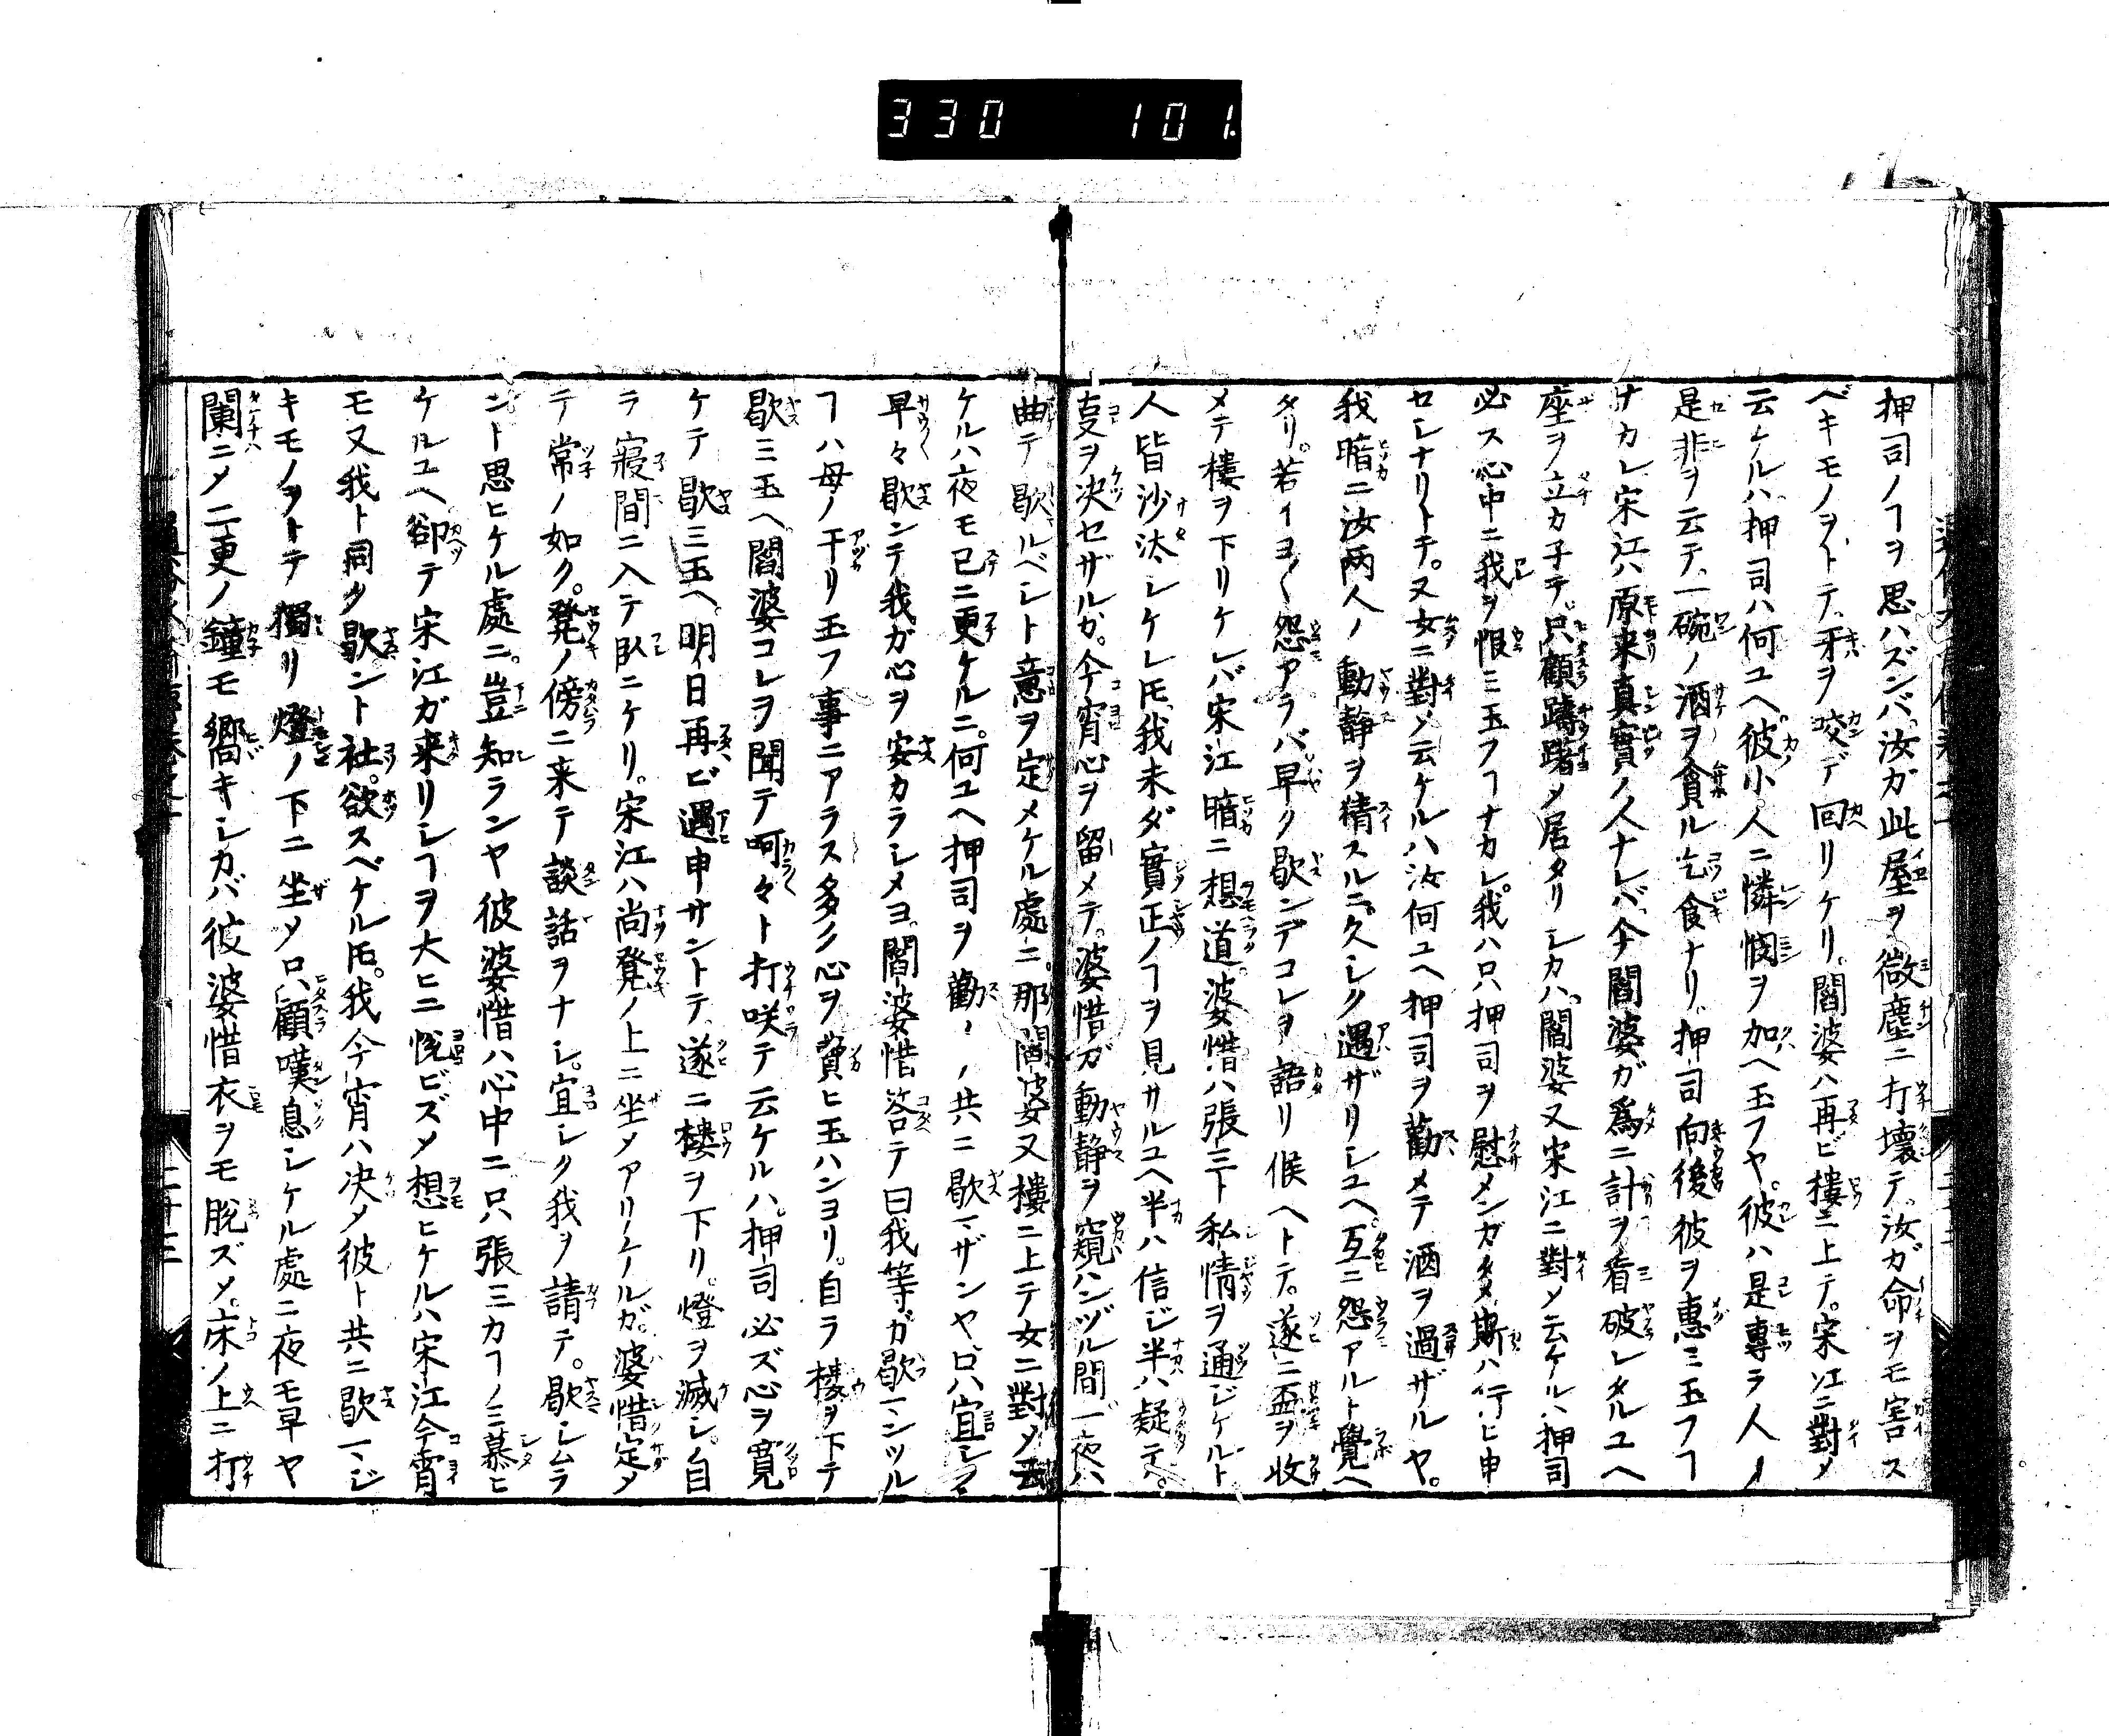 330 101.
押司ノヿヲ思ハズンバ、汝ガ此屋ヲ微塵ニ打壊テ、汝ガ命ヲモ害ス
ベキモノヲトテ、牙ヲ咬デ回リケリ。閻婆ハ再ビ樓ニ上テ。宋江ニ對メ
云ケルハ、押司ハ何ユヘ、彼小人ニ憐憫ヲ加ヘ玉フヤ。彼ハ是專ラ人ノ
是非ヲ云テ、一碗ノ酒ヲ貪ル乞食ナリ。押司向後彼ヲ惠ミ玉フヿ
ナカレ宋江ハ原来真實ノ人ナレバ、今閻婆ガ爲ニ計ヲ看破レタルユヘ
座ヲ立カ子テ。只顧躊躇メ居タリシカハ、閻婆又宋江ニ對メ云ケルハ押司
必ス心中ニ我ヲ恨ミ玉フヿナカレ。我ハ只押司ヲ慰メンガタメ、斯ハ行ヒ申
セシナリトテ。又女ニ對メ云ケルハ汝何ユヘ押司ヲ勸メテ酒ヲ過ザルヤ。
我暗ニ汝兩人ノ動静ヲ猜スルニ、久シク遇ザリシユヘ。互ニ怨アルト覺ヘ
タリ。若イヨ〱怨アラバ、早ク歇ンデコレヲ語リ候ヘトテ。遂ニ盃ヲ收
メテ樓ヲ下リケレバ宋江暗ニ想道。婆惜ハ張三ト私情ヲ通ジケルト
人皆沙汰シケレ𪜈、我未ダ實正ノヿヲ見サルユヘ半ハ信ジ半ハ疑テ。
㕝ヲ決セザルガ。今宵心ヲ留メテ。婆惜ガ動静ヲ窺ハンヅル間一夜ハ
曲テ歇ルベシト意ヲ定メケル處ニ。那閻婆又樓ニ上テ女ニ對メ云
ケルハ夜モ已ニ更ケルニ。何ユヘ押司ヲ勸メ共ニ歇マザンヤ、只宜シク
早々歇ンテ我ガ心ヲ安カラシメヨ。閻婆惜答テ曰我等ガ歇マンツル
ヿハ母ノ干リ玉フ事ニアラス多クノ心ヲ費ヒ玉ハンヨリ。自ラ樓ヲ下テ
歇ミ玉ヘ。閻婆コレヲ聞テ呵々ト打咲テ云ケルハ。押司必ズ心ヲ寛
ケテ歇ミ玉ヘ。明日再ビ遇申サントテ、遂ニ樓ヲ下リ。燈ヲ滅シ。自
ラ寢間ニ入テ臥ニケリ。宋江ハ尚凳ノ上ニ坐メアリケルガ。婆惜定メ
テ常ノ如ク。凳ノ傍ニ来テ談話ヲナシ。宜シク我ヲ請テ。歇シムラ
ント思ヒケル處ニ。豈知ランヤ彼婆惜ハ心中ニ只張三カヿノミ慕ヒ
ケルユヘ卻テ宋江ガ来リシヿヲ大ヒニ悦ビズメ想ヒケルハ宋江今宵
モ又我ト同ク歇ント社。欲スベケル𪜈。我今宵ハ決メ彼ト共ニ歇マジ
キモノヲトテ獨リ燈ノ下ニ坐メ只顧嘆息シケル處ニ夜モ早ヤ
闌ニメ二更ノ鐘モ響キシカバ彼婆惜衣ヲモ脱ズメ。床ノ上ニ打
二十三